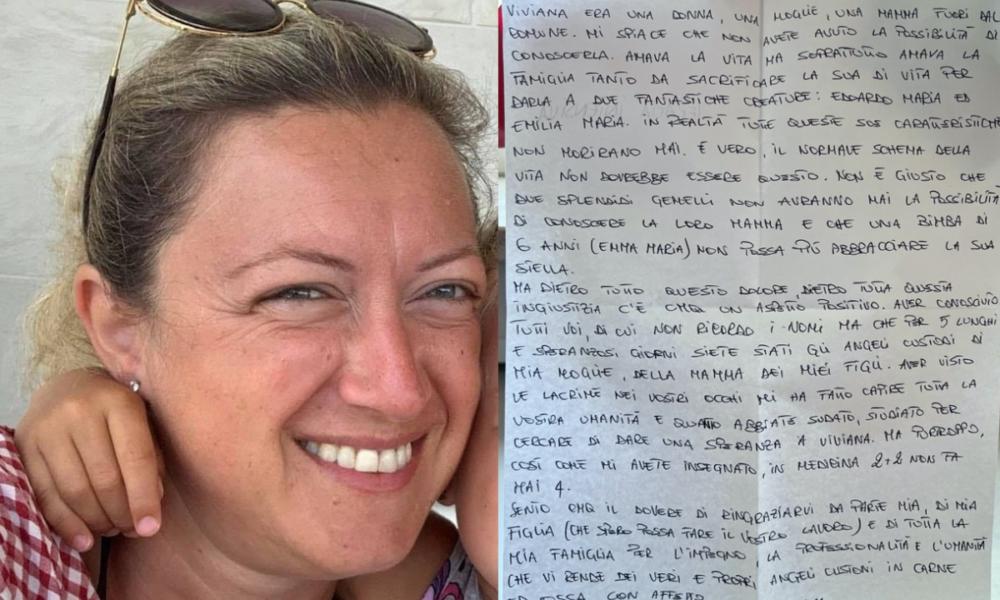 VIVIANA ERA UNA DONNA, UNA MOGLIE, UNA MAMMA FUORI DAL
COMUNE. MI SPIACE CHE NON AVETE AVUTO LA POSSIBILITÀ DI
CONOSCERLA. AMAVA LA VITA MA SOPRATTUTTO AMAVA LA
FAMIGLIA TANTO DA SACRIFICARE LA SUA DI VITA PER
DARLA A DUE FANTASTICHE CREATURE: EDOARDO MARIA ED
EMILIA MARIA. IN REALTÀ TUTTE QUESTE SUE CARATTERISTICHE
NON MORIRANO MAI. È VERO, IL NORMALE SCHEMA DELLA
VITA NON DOVREBBE ESSERE QUESTO. NON È GIUSTO CHE
DUE SPLENDIDI GEMELLI NON AVRANNO MAI LA POSSIBILITÀ
DI CONOSCERE LA LORO MAMMA E CHE UNA BIMBA DI
6 ANNI (EMMA MARIA) NON POSSA PIÙ ABBRACCIARE LA SUA
STELLA.
MA DIETRO TUTTO QUESTO DOLORE, DIETRO TUTTA QUESTA
INGIUSTIZIA C'È CMQ UN ASPETTO POSITIVO. AVER CONOSCIUTO
TUTTI VOI, DI CUI NON RICORDO I NOMI MA CHE PER 5 LUNGHI
E SPERANZOSI GIORNI SIETE STATI GLI ANGELI CUSTODI DI
MIA MOGLIE, DELLA MAMMA DEI MIEI FIGLI. AVER VISTO
LE LACRIME NEI VOSTRI OCCHI MI HA FATTO CAPIRE TUTTA LA
VOSTRA UMANITÀ E QUANTO ABBIATE SUDATO, STUDIATO PER
CERCARE DI DARE UNA SPERANZA A VIVIANA. MA PURTROPPO,
COSÌ COME MI AVETE INSEGNATO, IN MEDICINA 2+2 NON FA
MAI 4.
SENTO CMQ IL DOVERE DI RINGRAZIARVI DA PARTE MIA, DI MIA
FIGLIA (CHE SPERO POSSA FARE IL VOSTRO LAVORO) E DI TUTTA LA
MIA FAMIGLIA PER L'IMPEGNO, LA PROFESSIONALITÀ E L'UMANITÀ
CHE VI RENDE DEI VERI E PROPRI ANGELI CUSTODI IN CARNE
ED OSSA. CON AFFETTO